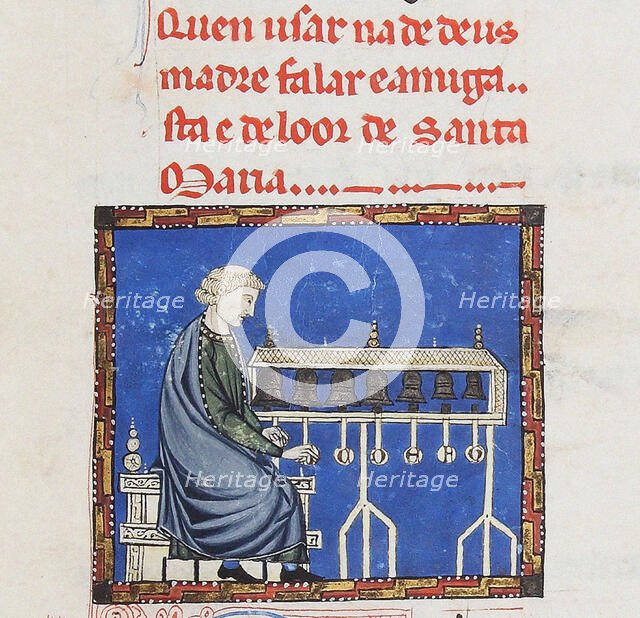 Quen usar na de deus
madre falar e amuga..
sta e de loor de Santa
Maria....
Heritage Heritage
Heritage Heritage
Heritage Heritage
C